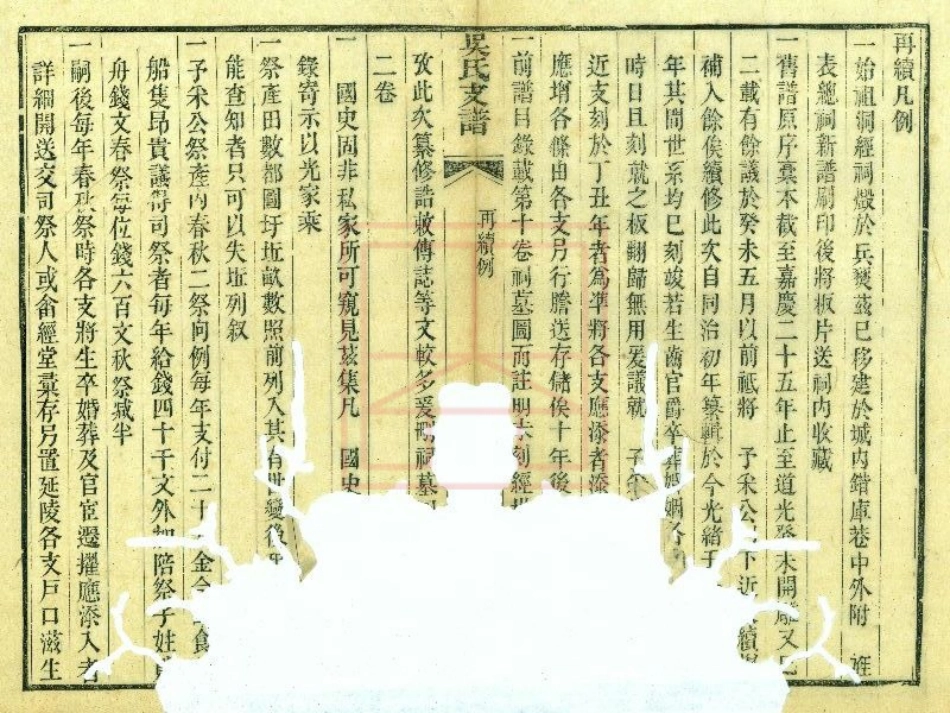 再續凡例
一始祖洞經祠燬於兵燹茲已移建於城內錯庫巷中外附 旌
表總祠新譜刷印後將板片送祠內收藏
一舊譜原序稾本截至嘉慶二十五年止至道光癸未開雕又
二載有餘議於癸未五月以前祗將 予釆公 下近
補入餘俟續修此次自同治初年纂輯於今光緒
年其間世系均已刻竣若生齒官爵卒葬婚姻
時日且刻就之板翻歸無用爰議就 予
近支刻於丁丑年者為準將各支應添者添
應增各條由各支另行謄送存儲俟十年後
一前譜目錄載第十卷祠墓圖而註明未刻經
吳氏支譜 再續例
攷此次纂修誥敕傳誌等文較多爰刪祠墓
二卷
一 國史固非私家所可窺見茲集凡 國史
錄寄示以光家乘
一祭產田數都圖圩坵畝數照前列入其有世變後
能查知者只可以失坵列叙
一予釆公祭產內春秋二祭向例每年支付二十 金合 食
船隻昂貴議得司祭者每年給錢四十千文外加陪祭子姓
舟錢文春祭每位錢六百文秋祭減半
一嗣後每年春秋祭時各支將生卒婚葬及官宦遷擢應添入者
詳細開送交司祭人或畬經堂彙存另置延陵各支戶口滋生